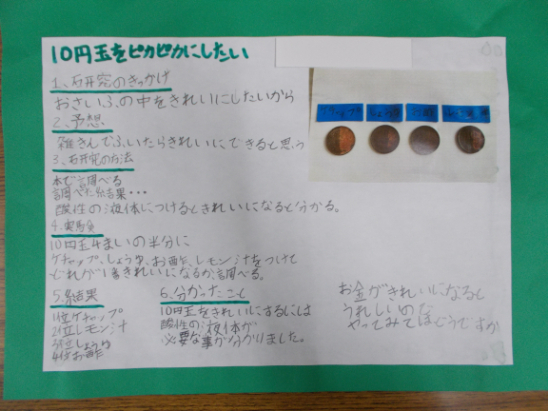 10円玉をピカピカにしたい
1、研究のきっかけ
おさいふの中をきれいにしたいから
2、予想
雑きんでふいたらきれいにできると思う
3、研究の方法
本で調べる
調べた結果・・・
酸性の液体につけるときれいになると分かる。
4、実験
10円玉4まいの半分に
ケチャップ、しょうゆ、お酢、レモン汁をつけて
どれが1番きれいになるか調べる。
5、結果
1位ケチャップ
2位レモン汁
3位しょうゆ
4位お酢
6、分かったこと
10円玉をきれいにするには
酸性の液体が
必要な事が分かりました。
お金がきれいになると
うれしいので
やってみてはどうですか